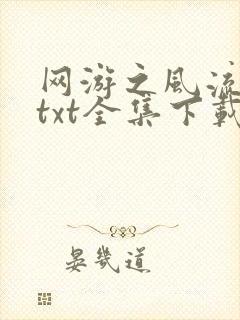 网游之风流
txt全集下载
晏几道